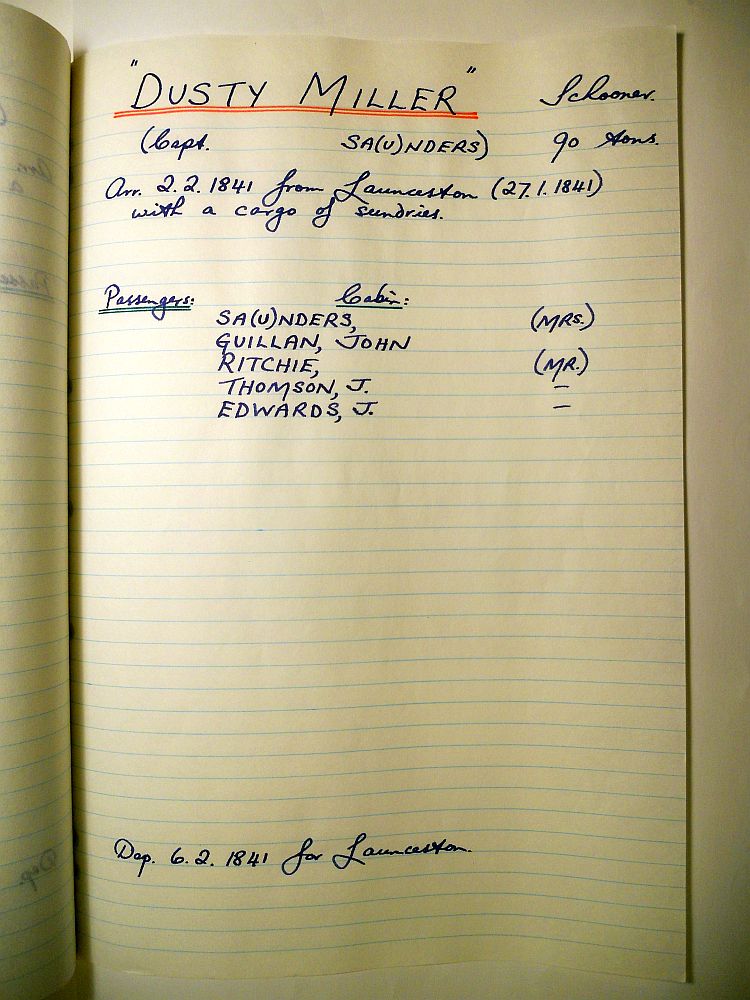 "DUSTY MILLER" Schooner.
(Capt. SA(U)NDERS) 90 tons.
Arr. 2.2.1841 from Launceston (27.1.1841)
with a cargo of sundries.
Passengers: Cabin:
SA(U)NDERS, (MRS.)
GUILLAN, JOHN
RITCHIE, (MR.)
THOMSON, J. –
EDWARDS, J. –
Dep. 6.2.1841 for Launceston.